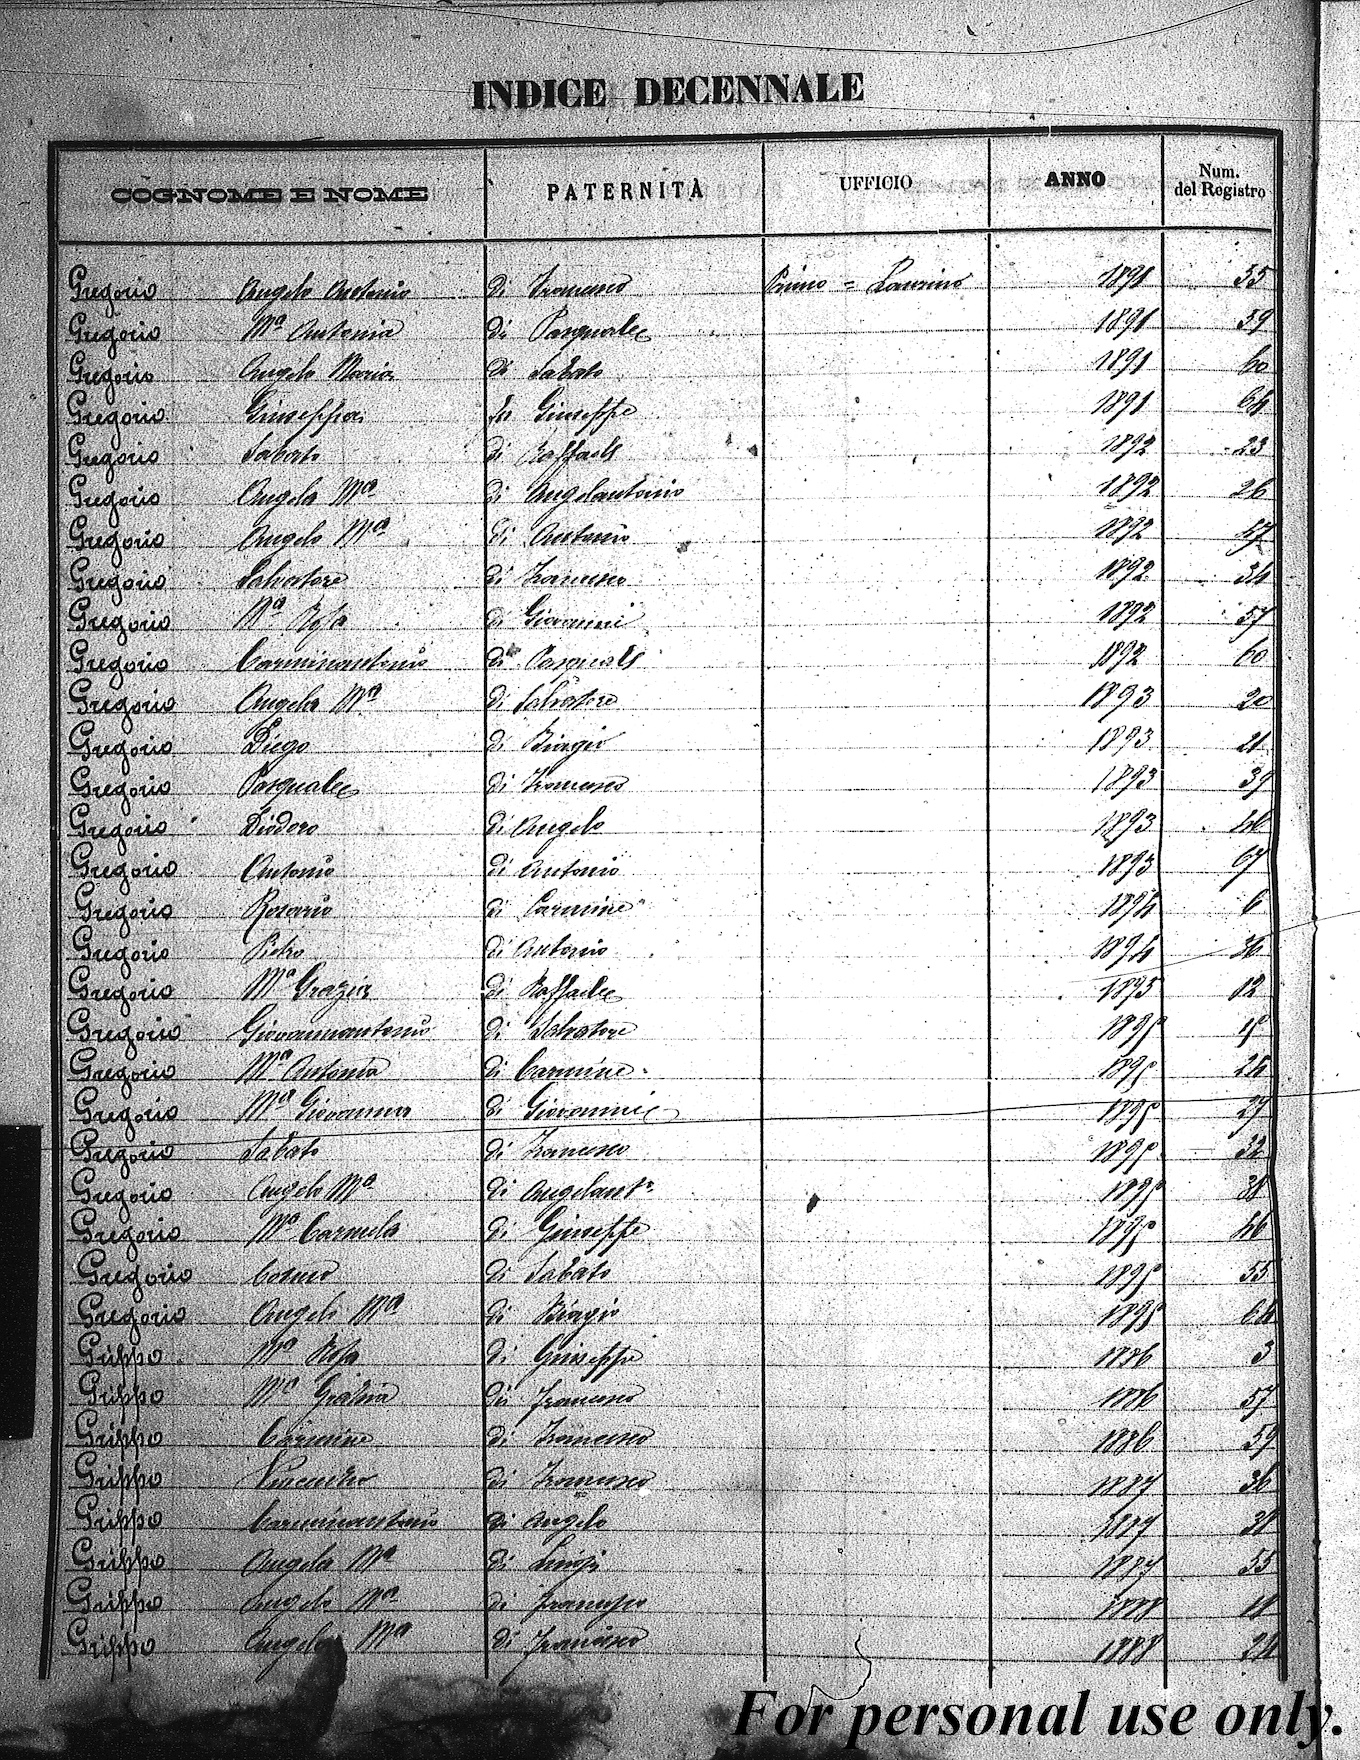 INDICE DECENNALE
COGNOME E NOME PATERNITÀ UFFICIO ANNO Num. del Registro
Gregorio Angelo Antonio di Francesco Primo = Laurino 1891 35
Gregorio Mª Antonia di Pasquale 1891 39
Gregorio Angelo Maria di Sabato 1891 60
Gregorio Giuseppa fu Giuseppe 1891 64
Gregorio Sabato di Raffaele 1892 23
Gregorio Angela Mª di Angelantonio 1892 26
Gregorio Angelo Mª di Antonio 1892
Gregorio Salvatore di Francesco 1892 34
Gregorio Mª Rosa di Giovanni 1892 57
Gregorio Carminantonio di Pasquale 1892 60
Gregorio Angela Mª di Salvatore 1893 20
Gregorio Diego di Biagio 1893 21
Gregorio Pasquale di Francesco 1893 39
Gregorio Diodoro di Angelo 1893
Gregorio Antonio di Antonio 1893 67
Gregorio Rosario di Carmine 1894 6
Gregorio Pietro di Antonio 1894 36
Gregorio Mª Grazia di Raffaele 1895 12
Gregorio Giovannantonio di Salvatore 1895 15
Gregorio Mª Antonia di Carmine 1895 24
Gregorio Mª Giovanna di Giovanni 1895 27
Gregorio Sabato di Francesco 1895 32
Gregorio Angelo Mª di Angelantº 1895 38
Gregorio Mª Carmela di Giuseppe 1895 46
Gregorio Cosmo di Sabato 1895 55
Gregorio Angelo Mª di Biagio 1895 64
Grippo Mª Rosa di Giuseppe 1886 3
Grippo Mª di Francesco 1886 57
Grippo Carmine di Francesco 1886 59
Grippo Vincenzo di Francesco 1887 36
Grippo Carminantonio di Angelo 1887 38
Grippo Angela Mª di Luigi 1887 55
Grippo Angelo Mª di Francesco 1888
Grippo Angelo Mª di Francesco 1888 24
For personal use only.